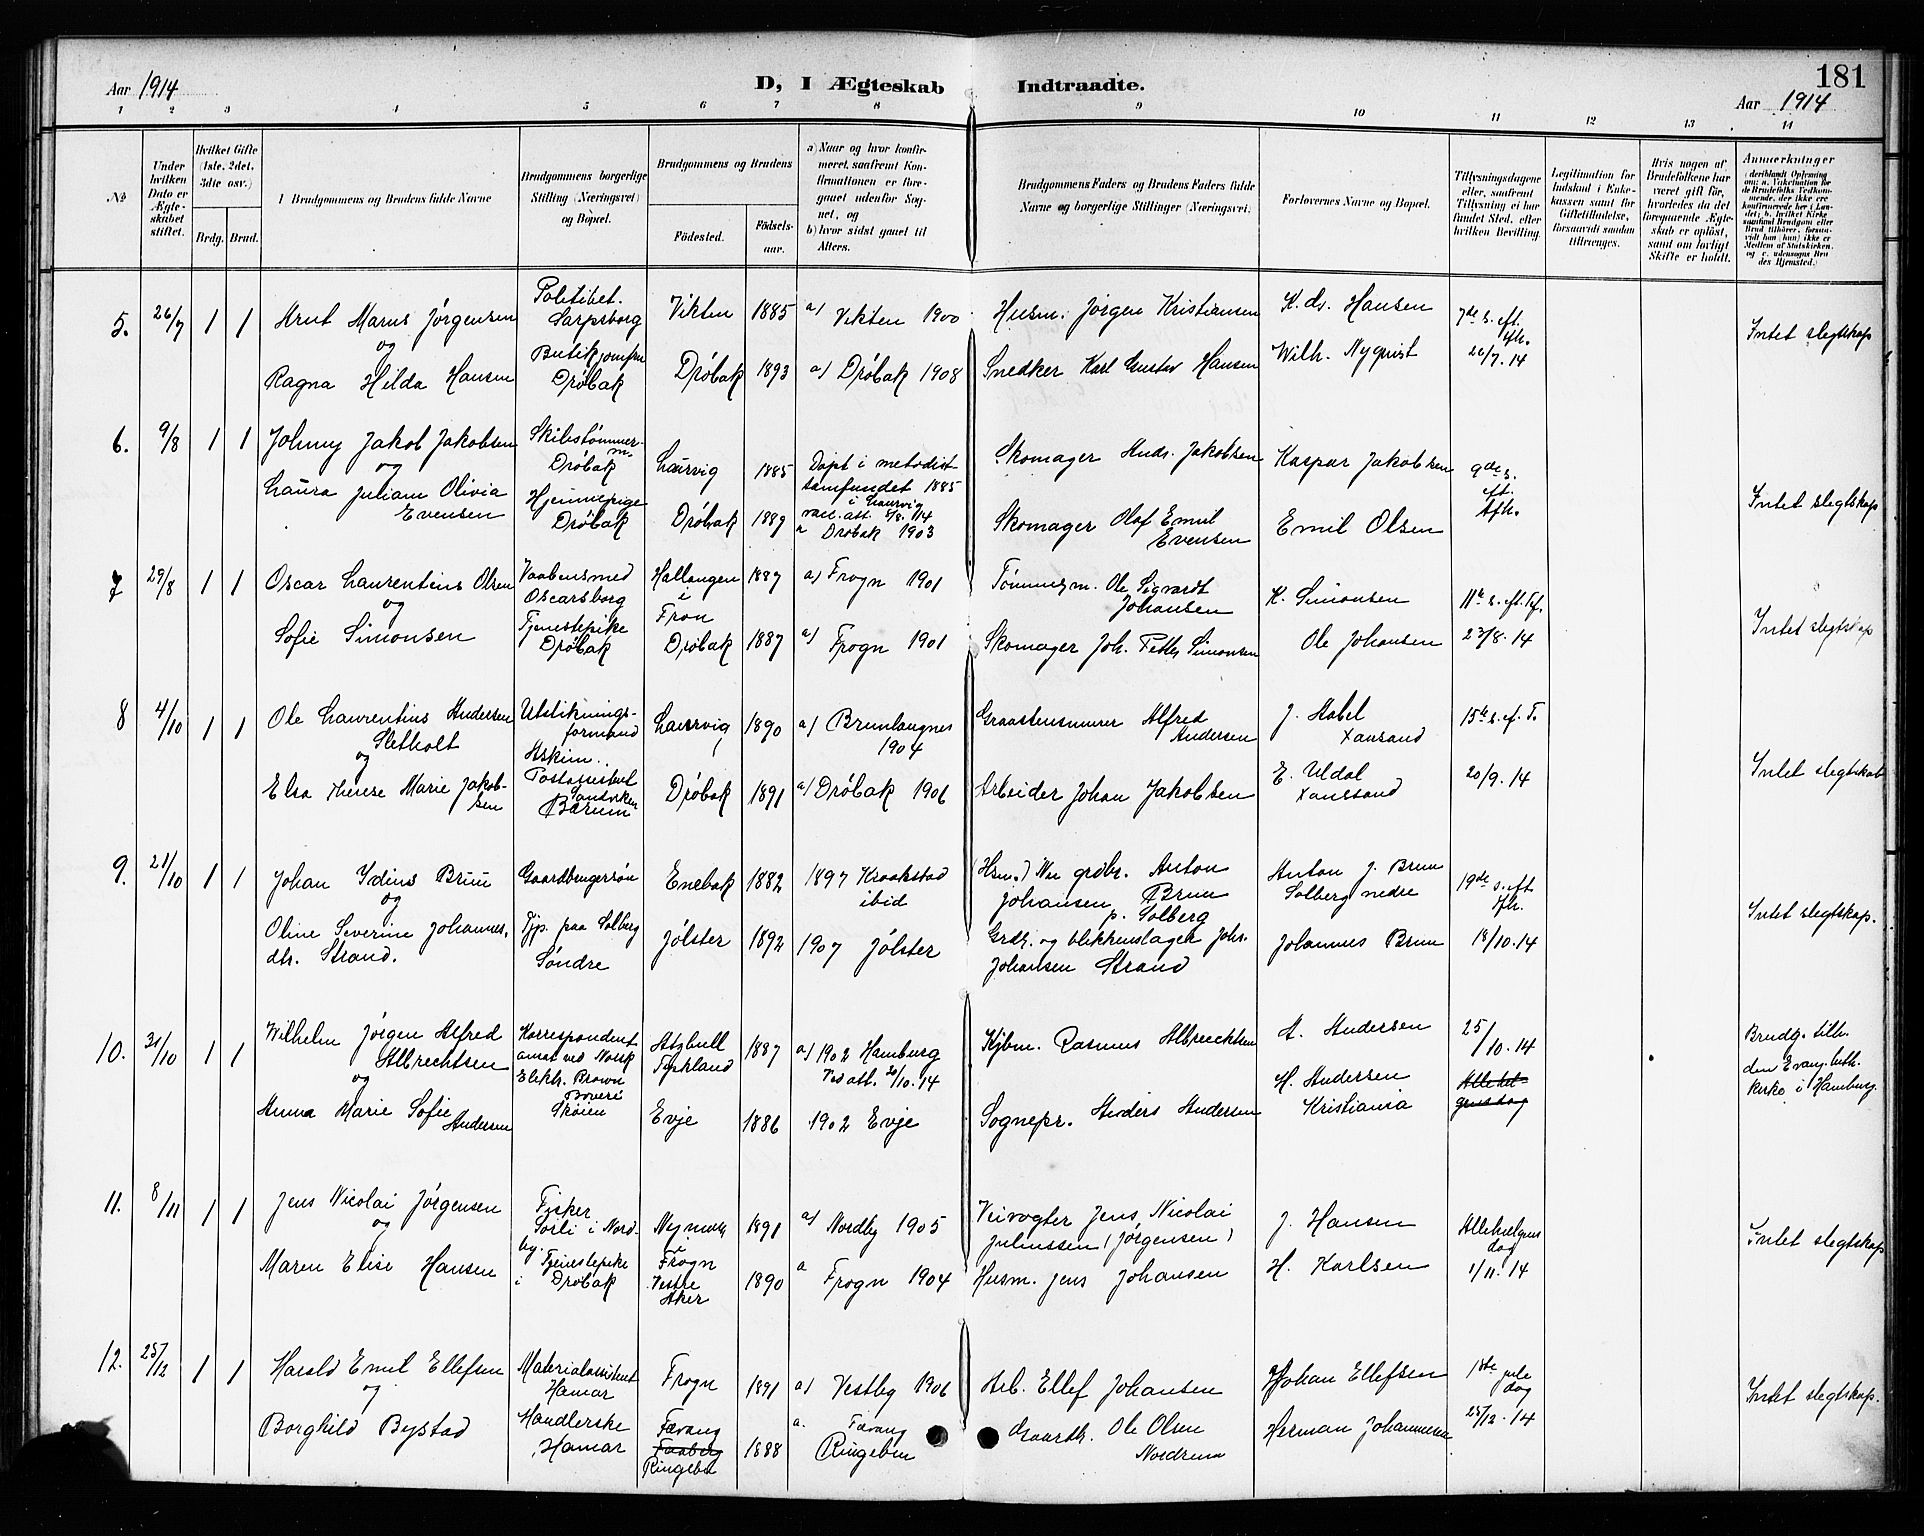 Aar 1914
D, I Ægteskab Indtraadte.
181
Aar 1914
1 2 3 4 5 6 7 8 9 10 11 12 13 14
No
Under hvilken Dato er Ægteskabet stiftet.
Hvilket Gifte (1ste, 2det, 3die osv.)
Brdg. Brud.
I Brudgommens og Brudens fulde Navne
Brudgommens borgerlige Stilling (Næringsvei) og Bopæl.
Brudgommens og Brudens
Födested.
Födselsaar.
a) Naar og hvor konfirmeret, saafremt Konfirmationen er foregaaet udenfor Sognet, og
b) hvor sidst gaaet til Alters.
Brudgommens Faders og Brudens Faders fulde Navne og borgerlige Stillinger (Næringsvei).
Forlovernes Navne og Bopæl.
Tillysningsdagene eller, saafremt Tillysning ei har fundet Sted, efter hvilken Bevilling
Legitimation for Indskud i Enkekassen samt for Giftetilladelse, forsaavidt saadan tiltrænges.
Hvis nogen af Brudefolkene har været gift før, hvorledes da det foregaaende Ægteskab er opløst, samt om lovligt Skifte er holdt.
Anmerkninger
5. 26/7 1 1
Knut Marius Jörgensen
og
Ragna Hilda Hansen
Politibet.
Sarpsborg
Butikjomfru
Dröbak
Vikten 1885 a) Vikten 1900
Dröbak 1893 a) Dröbak 1908
Husm. Jörgen Kristiansen
Snedker Karl Gustav Hansen
Hansen
Wilh. Nyquist
7de s. eft.
26/7. 14
Intet slegtskap
6. 9/8 1 1
Johnny Jakob Jakobsen
og
Laura Juliane Olivia
Evensen
Skibstömmerm.
Dröbak
Hjemmepige
Dröbak
Laurvig 1885
Döpt i metodist
samfundet 1885
i Laurvig
Dröbak 1889
a Dröbak 1903
Skomager Andr. Jakobsen
Skomager Olaf Emil
Evensen
Kaspar Jakobsen
Emil Olsen
9de s.
eft.
Intet slegtskap
7 29/8 1 1
Oscar Laurentius Olsen
og
Sofie Simonsen
Vaabensmed
Oscarsborg
Tjenestepike
Dröbak
Hallangen
i
Fron
1887 a) Frogn 1901
Dröbak 1887 a) Frogn 1901
Tömmerm. Ole Sigvardt
Johansen
Skomager Joh. Petter Simonsen
K. Simonsen
Ole Johansen
23/8. 14
Intet slegtskap
8 4/10 1 1
Ole Laurentius Andersen
Sletholt
og
Elsa Therese Marie Jakobsen
Utstikningsformand
Askim.
Sandviken
Bærum
Laurvig 1890 a) Brunlangnes
1904
Dröbak 1891 a) Dröbak 1906
Graastensmurer Alfred
Andersen
Arbeider Johan Jakobsen
E. Uldal
20/9. 14
Intet slegtskab
9. 21/10 1 1
Johan Ydins Bruu
og
Oline Severine Johannes.
dtr. Strand.
Gaardbrugersön
Tjp. paa Solberg
Söndre
Enebak 1882 1897 Kraakstad
ibid
Jölster 1892 1907 Jölster
grdbr. Anton
Johansen Bruu
p. Solberg
Grdr. og blikkenslager Johs.
Johansen Strand
Anton J. Bruu
Solberg nedre
Johannes Bruu
19de s. eft
18/10. 14
Intet slegtskap.
10. 31/10 1 1
Wilhelm Jörgen Alfred
Albrechtsen
og
Anna Marie Sofie
Andersen
Korrespondent
ansat ved Norsk
Elektr. Brown
Boveri
Sköien
Atzbull
Tyskland
1887 a) 1902 Hamburg
Ved att. 20/10. 14
Evje 1886 1902 Evje
Kjbm. Rasmus Albrechtsen
Sognepr. Anders Andersen
A. Andersen
H. Andersen
Kristiania
25/10. 14
Brudg. tilh.
den Evang. luth.
kirke i Hamburg.
11. 8/11 1 1
Jens Nicolai Jörgensen
og
Maren Elise Hansen
Fisker
Sorli i Nordby.
Tjenestepike
i Dröbak
Frogn
Vestre
Aker
1891 a) Nordby 1905
1890 a Frogn 1904
Veivogter Jens Nicolai
Juliussen (Jörgensen)
Husm. Jens Johansen
J. Hansen
H. Karlsen
Allehelgens
dag
1/11. 14
Intet slegtskap
12. 25/12 1 1
Harald Emil Ellefsen
og
Borghild Bystad
Materialassistent
Hamar
Handlerske
Hamar
Frogn 1891 a) Vestby 1906
Faavang
Ringebu
1888
a. Faavang
Ringebu
Arb. Ellef Johansen
Gaardbr. Ole Olsen
Nordrum
Johan Ellefsen
Herman Johannesen
1ste jule
dag
25/12. 14
Intet slegtskap.